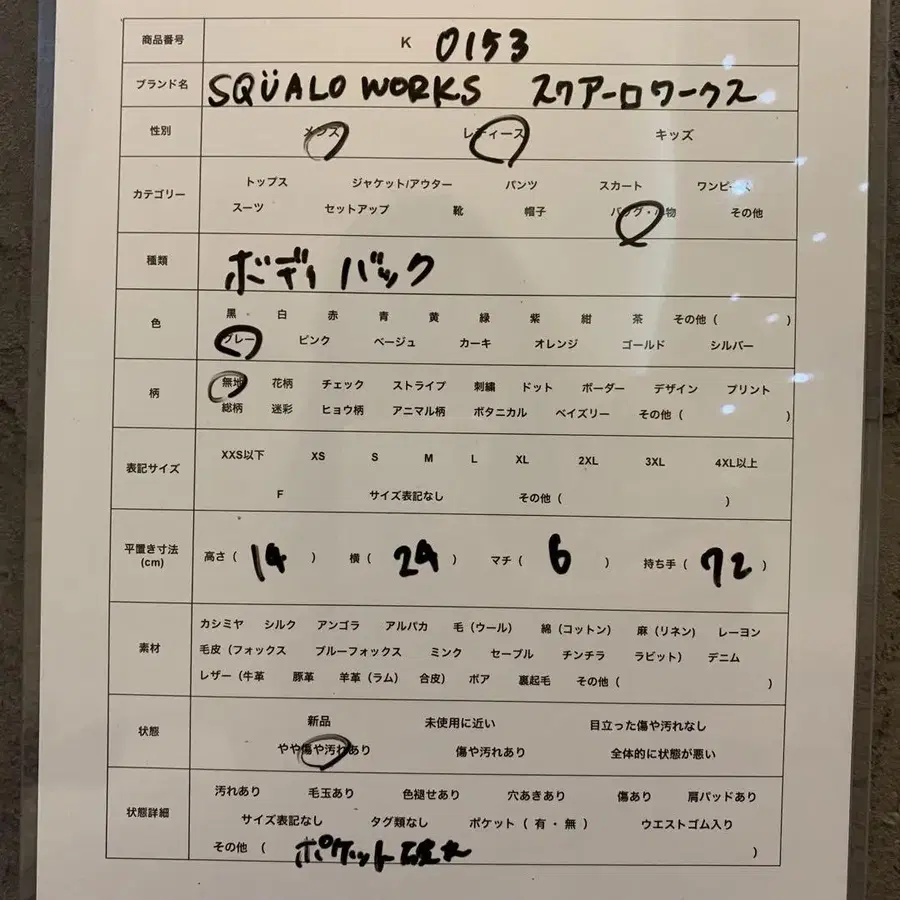 商品番号 K 0153
ブランド名 SQÜALO WORKS スクアーロワークス
性別 メンズ レディース キッズ
カテゴリー
トップス ジャケット/アウター パンツ スカート ワンピース
スーツ セットアップ 靴 帽子 バッグ・小物 その他
種類 ボディバック
色
黒 白 赤 青 黄 緑 紫 紺 茶 その他 ( )
グレー ピンク ベージュ カーキ オレンジ ゴールド シルバー
柄
無地 花柄 チェック ストライプ 刺繍 ドット ボーダー デザイン プリント
総柄 迷彩 ヒョウ柄 アニマル柄 ボタニカル ペイズリー その他 ( )
表記サイズ
XXS以下 XS S M L XL 2XL 3XL 4XL以上
F サイズ表記なし その他 ( )
平置き寸法
(cm)
高さ ( 14 ) 横 ( 24 ) マチ ( 6 ) 持ち手 ( 72 )
素材
カシミヤ シルク アンゴラ アルパカ 毛 (ウール) 綿 (コットン) 麻 (リネン) レーヨン
毛皮 (フォックス ブルーフォックス ミンク セーブル チンチラ ラビット) デニム
レザー (牛革 豚革 羊革 (ラム) 合皮) ボア 裏起毛 その他 ( )
状態
新品 未使用に近い 目立った傷や汚れなし
やや傷や汚れあり 傷や汚れあり 全体的に状態が悪い
状態詳細
汚れあり 毛玉あり 色褪せあり 穴あきあり 傷あり 肩パッドあり
サイズ表記なし タグ類なし ポケット ( 有 ・ 無 ) ウエストゴム入り
その他 ( ポケット )